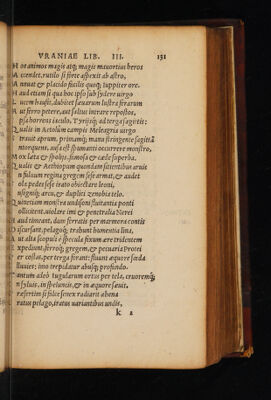 VRANIAE LIB. III. 131
H os animos magis atq; magis mauortius heros
A ccendet, rutilo si firte aspexit ab astro,
A nnuat & placido facilis quoq; Iuppiter ore.
A udetiam si qua hoc ipso sub sydere uirgo
L ucem hausit, dubitet sæuarum lustra ferarum
A ut ferro petere, aut saltus intrare repostos,
I psa horrens iaculo, Tyrijsq; ad terga sagittis:
Q ualis in Aetolûm campis Meleagria uirgo
S trauit aprum, primamq; manu stringente sagittã
I ntorquens, ausa est spumanti occurrere monstro,
M ox læta & spolijs, famosa & cæde superba.
Q ualis & Aethiopum quondam sitientibus aruis
I n fuluum regina gregem sese armat, & audet
S ola pedes sese irato obiectare leoni,
I nsignis; arcu, & duplici zenobia telo.
Q uinetiam monstra undisoni fluitantia ponti
S ollicitent, uiolare imi & penetralia Nerei
A ud timeant, dum serratis per marmora contis
D iscursant, pelagoq; trahunt humentia lina,
A ut alta scopuli è specula fixum ære tridentem
E xpediunt, ferroq; gregem, & pecuaria Protei
P er costas, per terga firant: fluunt æquore fœda
I lluuies: imo trepidatur abusq; profundo.
T antum adeò iugularum ortus per tela, cruoremq;
I n syluis, in speluncis, & in æquore sæuit,
P ræsertim si falce senex radiarit ahena
I ratus pelago, tratus uariantibus undis,
k 2